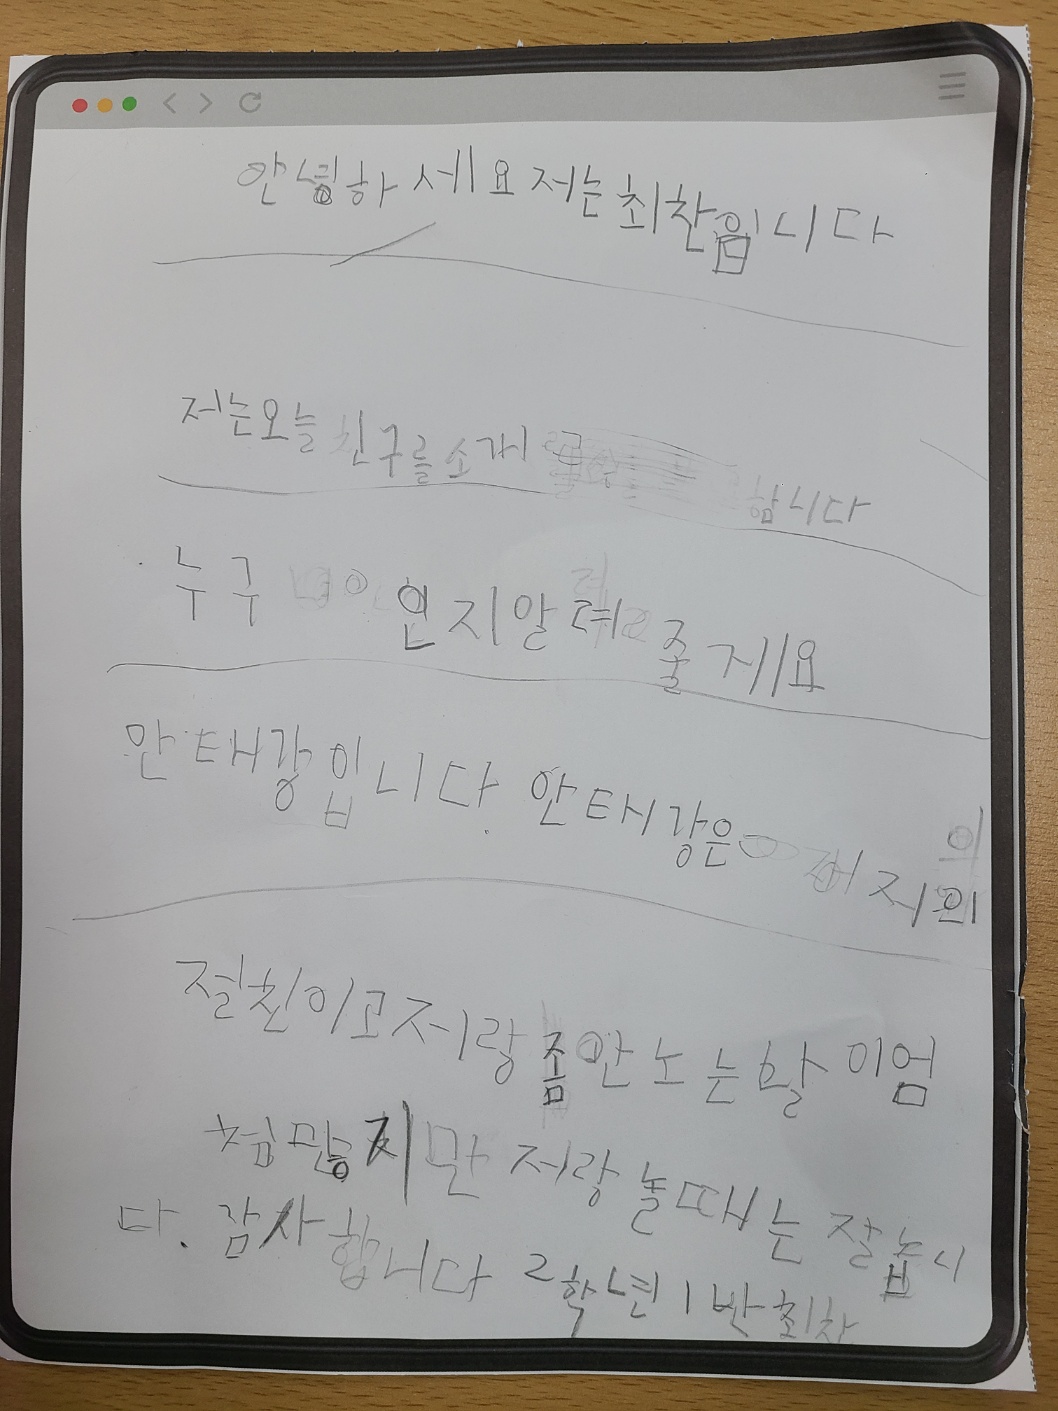 안녕하세요 저는 최찬입니다
저는오늘 친구를 소개 합니다
누구 인지알려 줄게요
안태강입니다. 안태강은 저의
절친이고저랑 좀안노는날이엄
첨많지만 저랑 놀때는 잘놉니
다. 감사합니다 2학년1반최찬